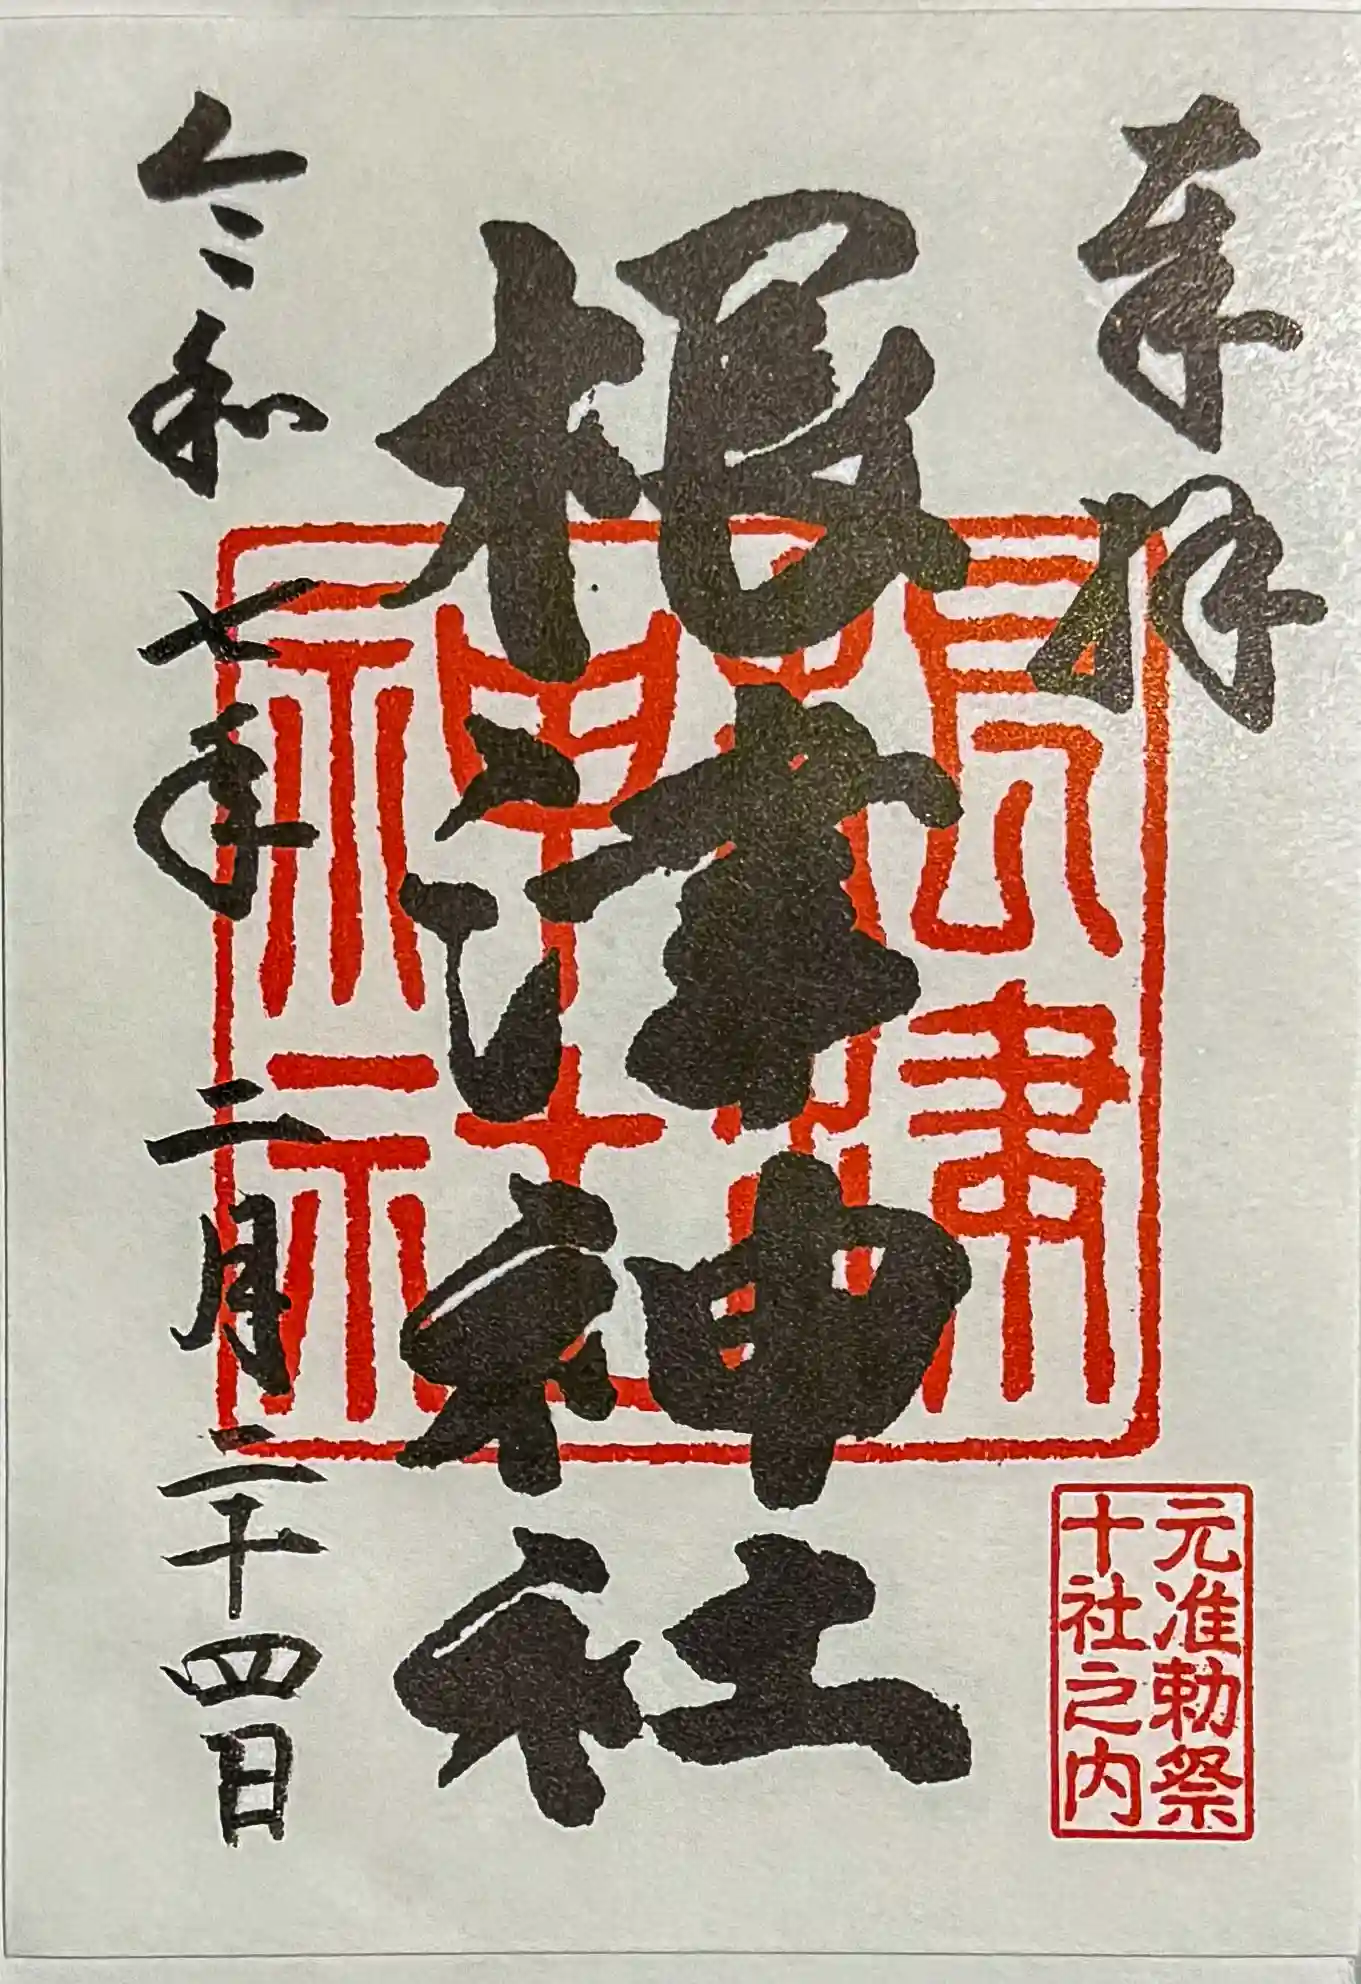 奉拝
根津神社
令和七年二月二十四日
元准勅祭
十社之内